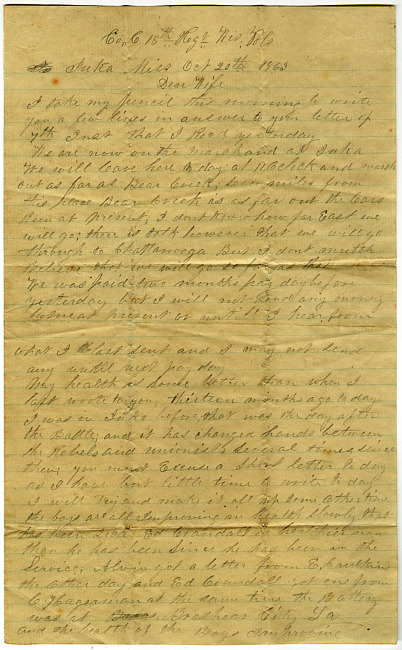 Co, C 18th Regt Wis, Vols
Iuka Miss Oct 20th 1863
Dear Wife
I take my pencil this morning to write
you a few lines in answer to your letter of
7th Inst that I Recd yesterday
We are now on the march and at Iuka
We will leave here to day at 11 Oclock and march
out as far as Bear Creek, seven miles from
this place Bear Creek is as far out the Cars
Run at present, I dont know how far East we
will go, there is talk however that we will go
through to Chattanooga But I dont mutch
believe that we will go so far as that
We was paid two months pay day before
yesterday but I will not send any money
at present or untill I hear from
what I last sent and I may not send
any until next pay day
My health is some better than when I
last wrote to you, thirteen months ago to day
I was in Iuka before, that was the day after
the Battle, and it has changed hands between
the Rebels and unionists several times since
then, you must Excuse a short letter to day
as I have but little time to write to day
I will try and make it all up some other time
the boys are all Improving in health slowly that
has been sick, Ed Crandall is healthier now
than he has been since he has been in the
Service, Alvin got a letter from E,
the other day and Ed Crandall got one from
C, Hagerman at the same time the Battery
was at Brashear City, La
and the health of the Boys improving